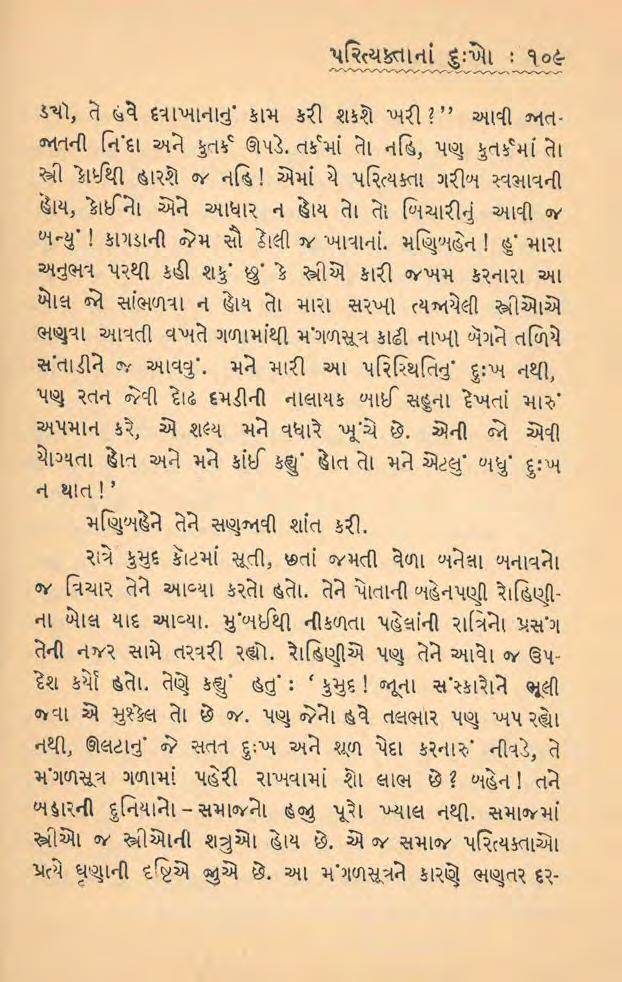 પરિત્યક્તાનાં દુઃખો : ૧૦૯
ડયો, તે હવે દવાખાનાનું કામ કરી શકશે ખરી?’’ આવી જાત-
જાતની નિંદા અને કુતર્ક ઊપડે. તર્કમાં તો નહિ, પણ કુતર્કમાં તો
સ્ત્રી કોઈથી હારશે જ નહિ! એમાં યે પરિત્યક્તા ગરીબ સ્વભાવની
હોય, કોઈનો એને આધાર ન હોય તો તો બિચારીનું આવી જ
બન્યું! કાગડાની જેમ સૌ ઠોલી જ ખાવાનાં. મણિબહેન! હું મારા
અનુભવ પરથી કહી શકું છું કે સ્ત્રીએ કારી જખમ કરનારા આ
બોલ જો સાંભળવા ન હોય તો મારા સરખી ત્યજાયેલી સ્ત્રીઓએ
ભણવા આવતી વખતે ગળામાંથી મંગળસૂત્ર કાઢી નાખી બૅગને તળિયે
સંતાડીને જ આવવું. મને મારી આ પરિસ્થિતિનું દુઃખ નથી,
પણ રતન જેવી દોઢ દમડીની નાલાયક બાઈ સહુના દેખતાં મારું
અપમાન કરે, એ શલ્ય મને વધારે ખૂંચે છે. એની જો એવી
યોગ્યતા હોત અને મને કાંઈ કહ્યું હોત તો મને એટલું બધું દુઃખ
ન થાત!’
મણિબહેને તેને સમજાવી શાંત કરી.
રાત્રે કુમુદ કોટમાં સૂતી, છતાં જમતી વેળા બનેલા બનાવનો
જ વિચાર તેને આવ્યા કરતો હતો. તેને પોતાની બહેનપણી રોહિણી-
ના બોલ યાદ આવ્યા. મુંબઈથી નીકળતા પહેલાંની રાત્રિનો પ્રસંગ
તેની નજર સામે તરવરી રહ્યો. રોહિણીએ પણ તેને આવો જ ઉપ-
દેશ કર્યો હતો. તેણે કહ્યું હતું : ‘કુમુદ! જૂના સંસ્કારોને ભૂલી
જવા એ મુશ્કેલ તો છે જ. પણ જેનો હવે તલભાર પણ ખપ રહ્યો
નથી, ઊલટાનું જે સતત દુઃખ અને શૂળ પેદા કરનારું નીવડે, તે
મંગળસૂત્ર ગળામાં પહેરી રાખવામાં શો લાભ છે? બહેન! તને
બહારની દુનિયાનો – સમાજનો હજી પૂરો ખ્યાલ નથી. સમાજમાં
સ્ત્રીઓ જ સ્ત્રીઓની શત્રુઓ હોય છે. એ જ સમાજ પરિત્યક્તાઓ
પ્રત્યે ઘૃણાની દૃષ્ટિએ જુએ છે. આ મંગળસૂત્રને કારણે ભણતર દર-